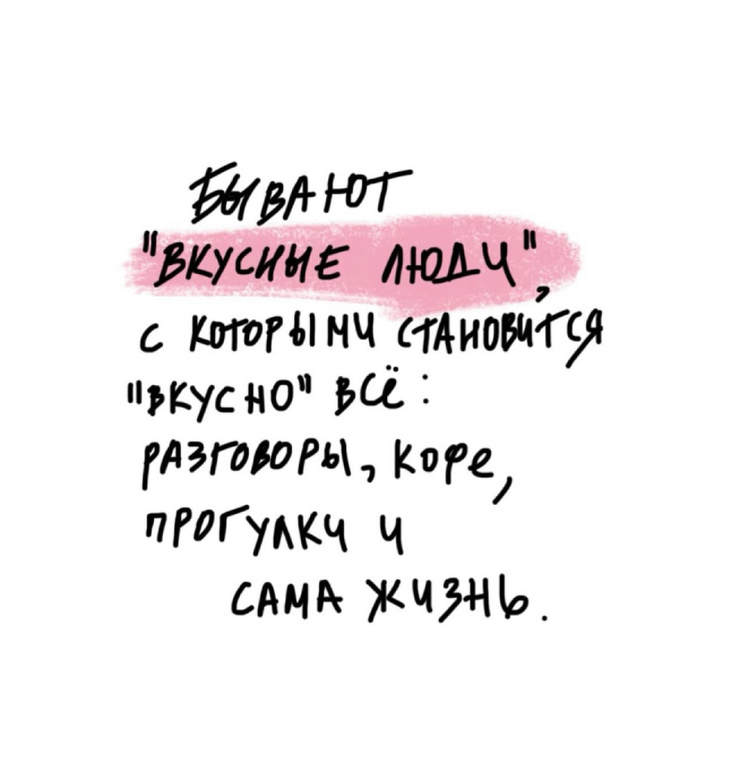 Бывают
"вкусные люди",
с которыми становится
"вкусно" всё:
разговоры, кофе,
прогулки и
сама жизнь.